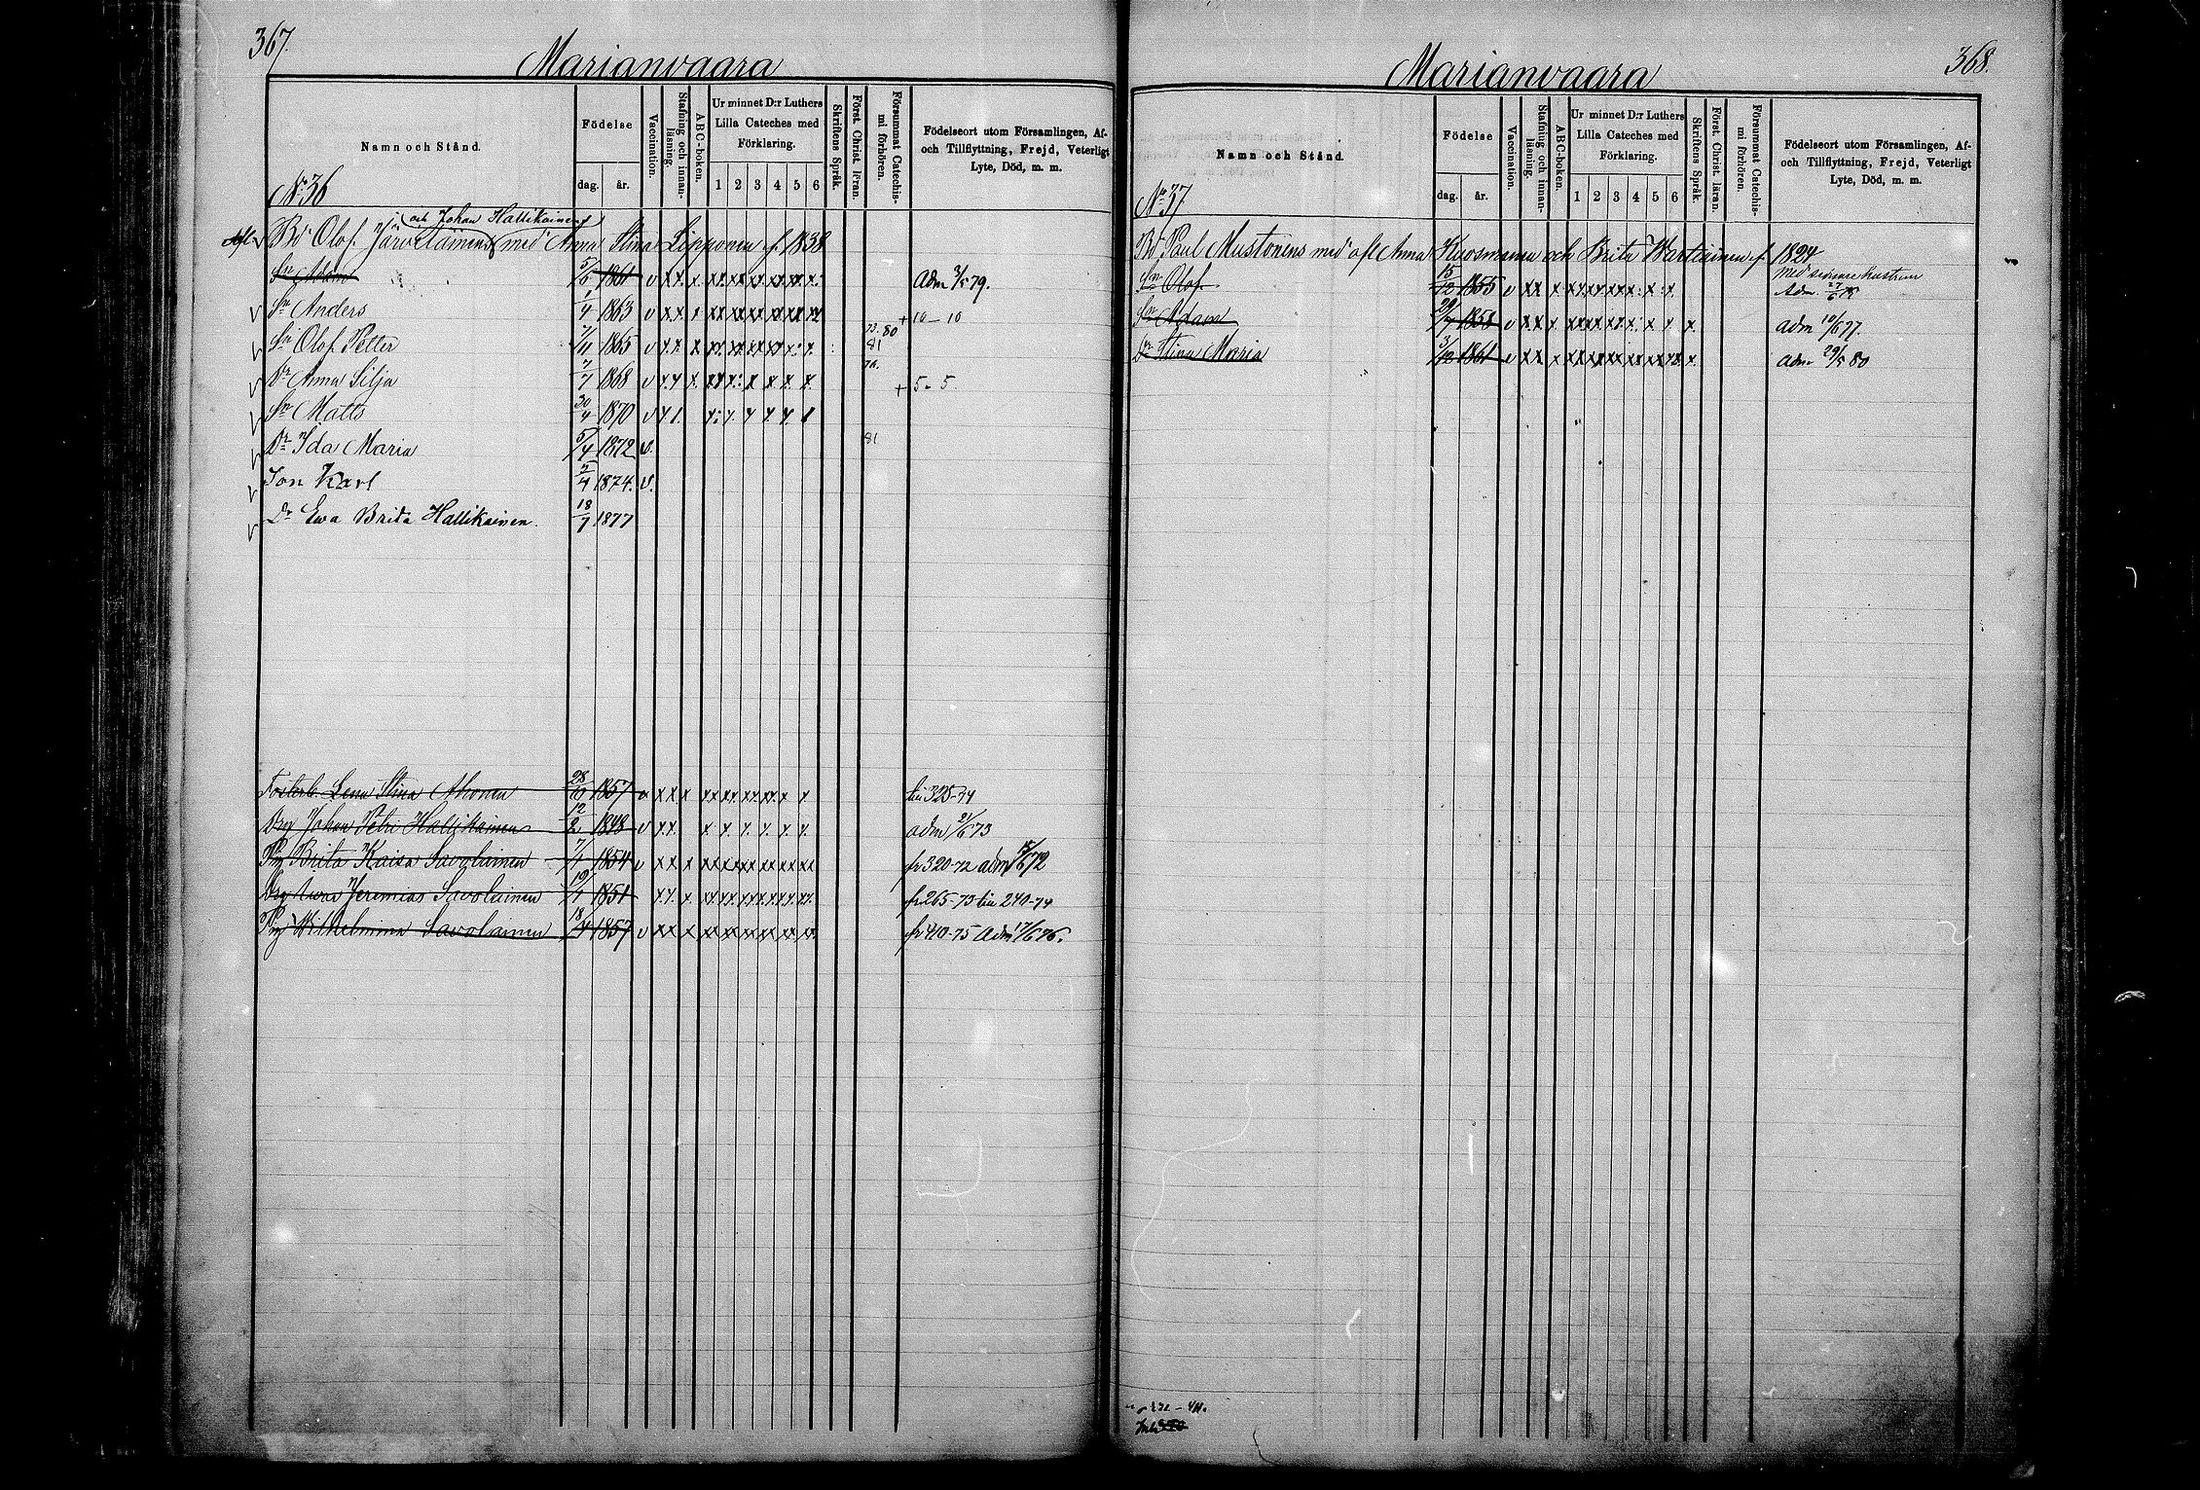 367.
Marianvaara
Namn och Stånd.
Födelse
dag. år.
Vaccination.
Stafning och innan-läsning.
ABC-boken.
Ur minnet D:r Luthers Lilla Cateches med Förklaring.
1 2 3 4 5 6
Skriftens Språk.
Först. Christ. läran.
Försummat Catechis-mi förhören.
Födelseort utom Församlingen, Af-
och Tillflyttning, Frejd, Veterligt
Lyte, Död, m. m.
No 36
och Johan Hallikainen
Bd Olof med Anna Stina Lipponen f. 1838
Sn Adam 5/5 1861 v Adm 3/5 79.
Sn Anders 1/4 1863 v + 10-10
Sn Olof Petter 7/11 1865 v 73. 80 81
Dr Anna Silja 7/7 1868 v 76. + 5-5
Sn Matts 30/4 1870 v
Dr Ida Maria 5/4 1872 v. 81
Son Karl 2/4 1874. v.
Dr Ewa Brita Hallikainen. 18/7 1877
Fosterb. Lena Stina Ahonen 28/10 1857 v till 325-74
Drg Johan Petri Hallikainen 12/2 1848 v adm 21/6 73
Pig Brita Kaisa Savolainen 7/1 1854 v fr 320-72 adm 15/6 72
Drg Jeremias Savolainen 19/1 1851 fr 265-73 till 240-74
Pig Wilhelmina Savolainen 18/4 1857 v fr 410-75 Adm 17/6 76.
368.
Marianvaara
Namn och Stånd.
Födelse
dag. år.
Vaccination.
Stafning och innan-läsning.
ABC-boken.
Ur minnet D:r Luthers Lilla Cateches med Förklaring.
1 2 3 4 5 6
Skriftens Språk.
Först. Christ. läran.
Försummat Catechis-mi förhören.
Födelseort utom Församlingen, Af-
och Tillflyttning, Frejd, Veterligt
Lyte, Död, m. m.
No 37
Bd Paul Mustonens med afl Anna Kuosmanen och Brita Wartiainen f. 1824
med senare hustrun
Sn Olof 15/12 1855 v Adm. 27/6
Sn Adam 29/7 1858 v adm 10/6 77.
Dr Stina Maria 3/12 1861 v adm 29/5 80